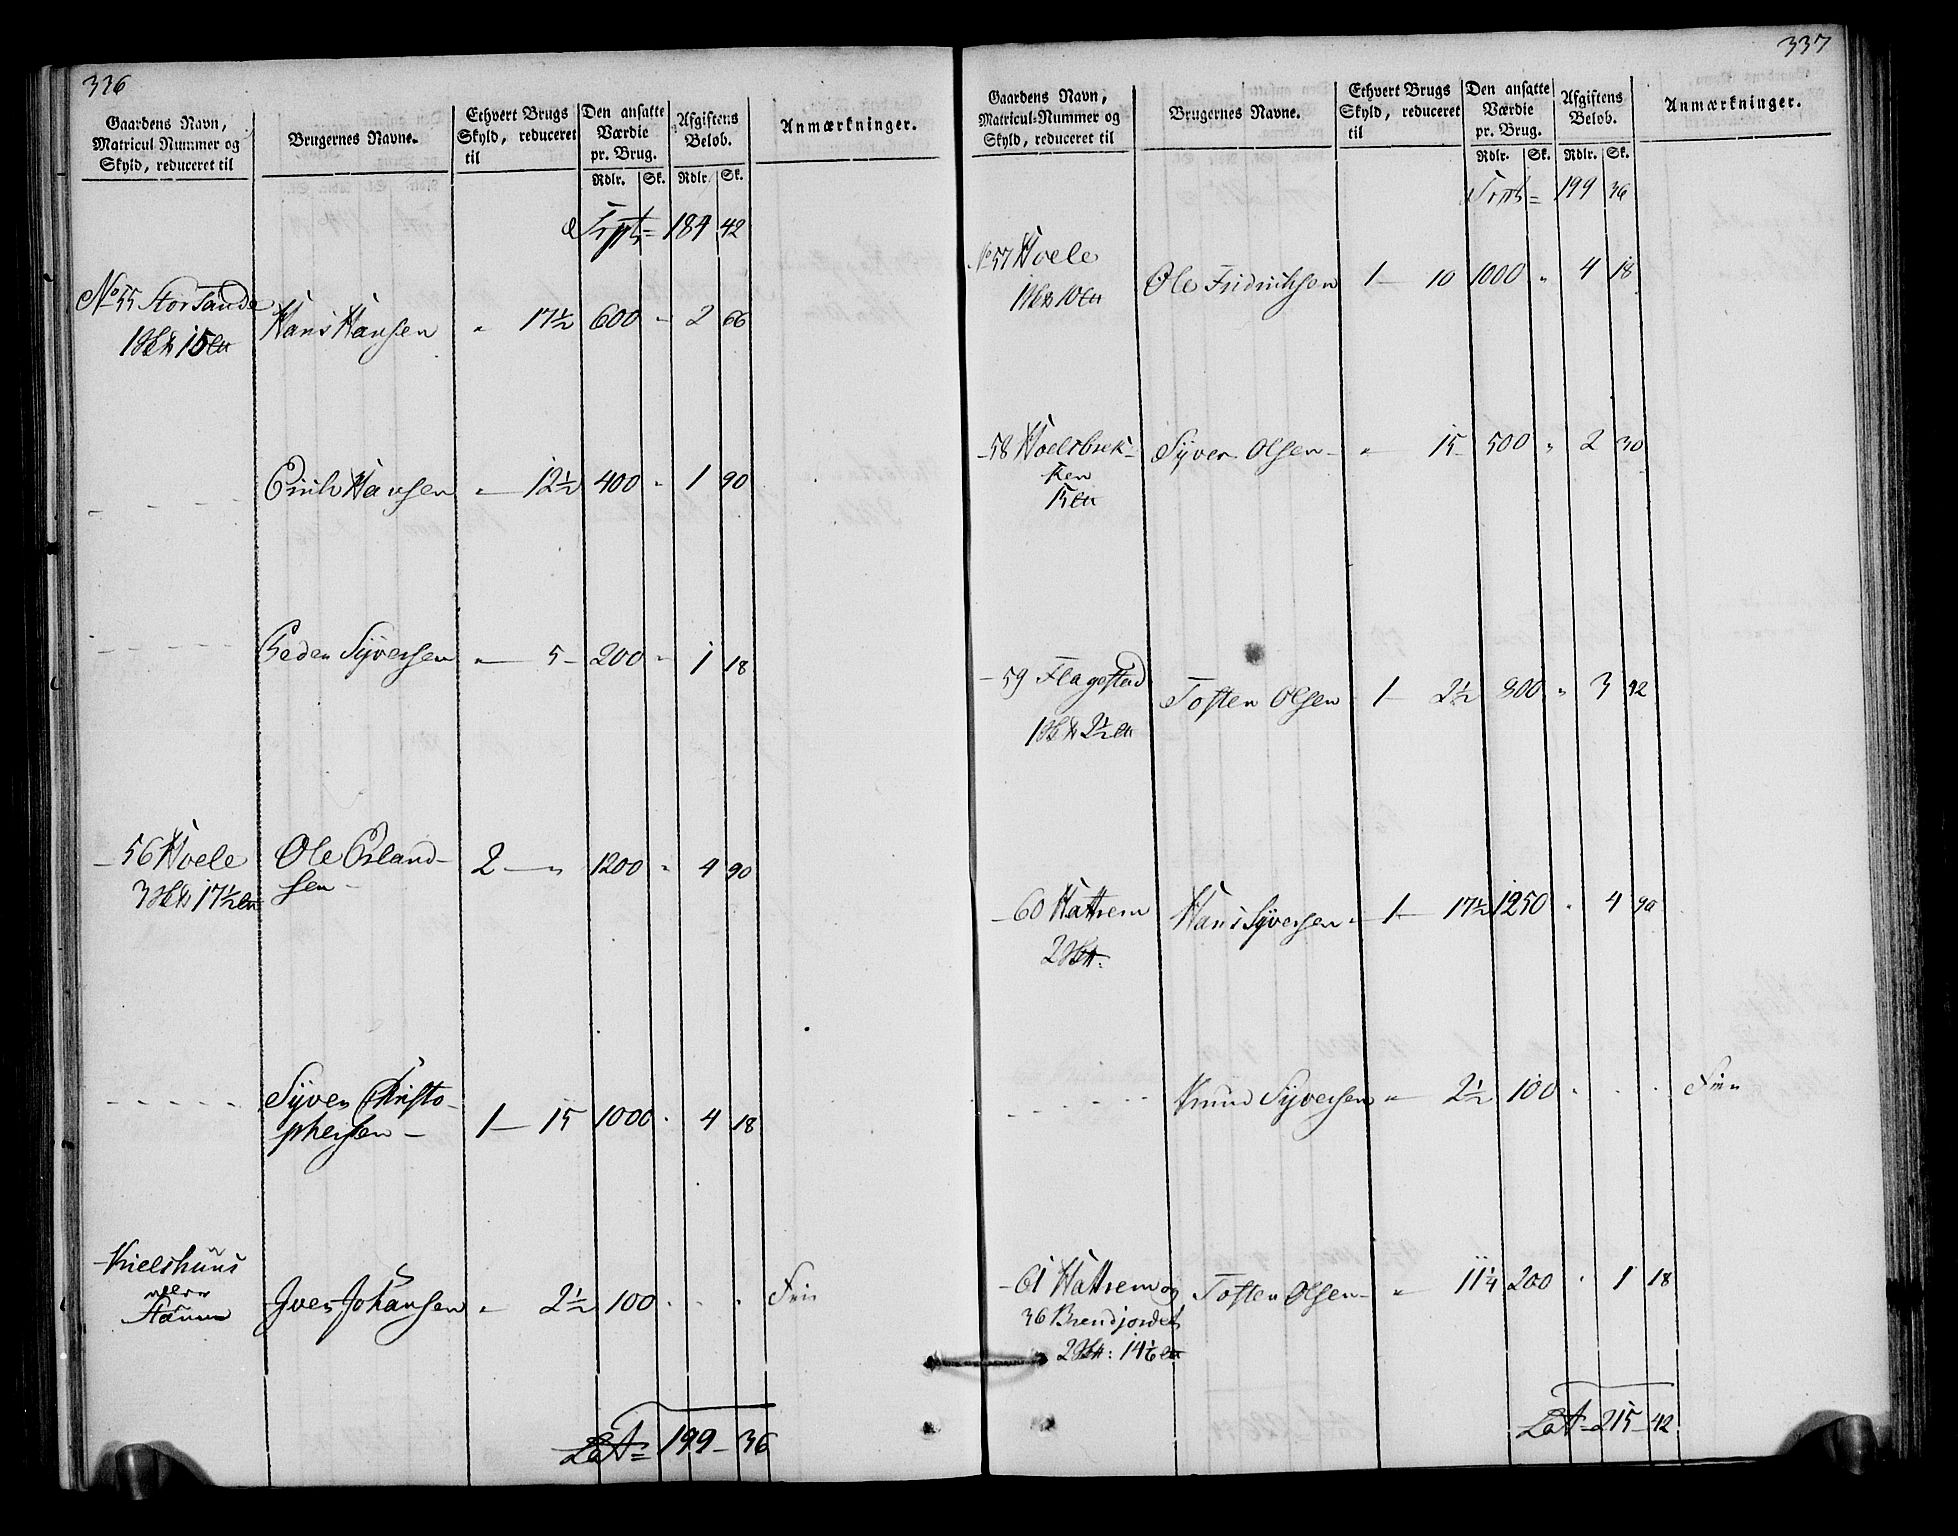 336
Gaardens Navn, Matricul Nummer og Skyld, reduceret til | Brugernes Navne. | Ethvert Brugs Skyld, reduceret til | Den ansatte Værdie pr. Brug. Rdlr. Sk. | Afgiftens Beløb. Rdlr. Sk. | Anmærkninger.
Trpt= 184 42
No 55 Storsande Hans Hansen " 17½ 600 " 2 66
1 15
Erich Hansen " — 12½ 400 " 1 90
Peder Syversen " — 5 - 200 " 1 18
- 56 Hoele Ole Erland- 2 — " 1200 " 4 90
3 17½ sen -
Syver Christo-
phersen - 1 — 15 1000 " 4 18
Kielshuus
Iver Johansen " 2½ 100 " " " Frie
Lat= 199 - 36
337
Gaardens Navn, Matricul-Nummer og Skyld, reduceret til | Brugernes Navne. | Ethvert Brugs Skyld, reduceret til | Den ansatte Værdie pr. Brug. Rdlr. Sk. | Afgiftens Beløb. Rdlr. Sk. | Anmærkninger.
Trpt= 199 36
No 57 Hoele Ole Fridrichsen 1 — 10 1000 " 4 18
1 10
- 58 Hoelsbrek- Syver Olsen - " 15 500 " 2 30
ken
15
- 59 Flagestad Tosten Olsen 1 — 2½ 800 " 3 42
1 2½
- 60 Hattrem Hans Syversen - 1 — 17½ 1250 " 4 90
2
Knud Syversen " 2½ 100 " " " Frie
- 61 Hattrem og Tosten Olsen - " 11¼ 200 " 1 18
36 Brendjordet
2 14⅙
Lat= 215 - 42